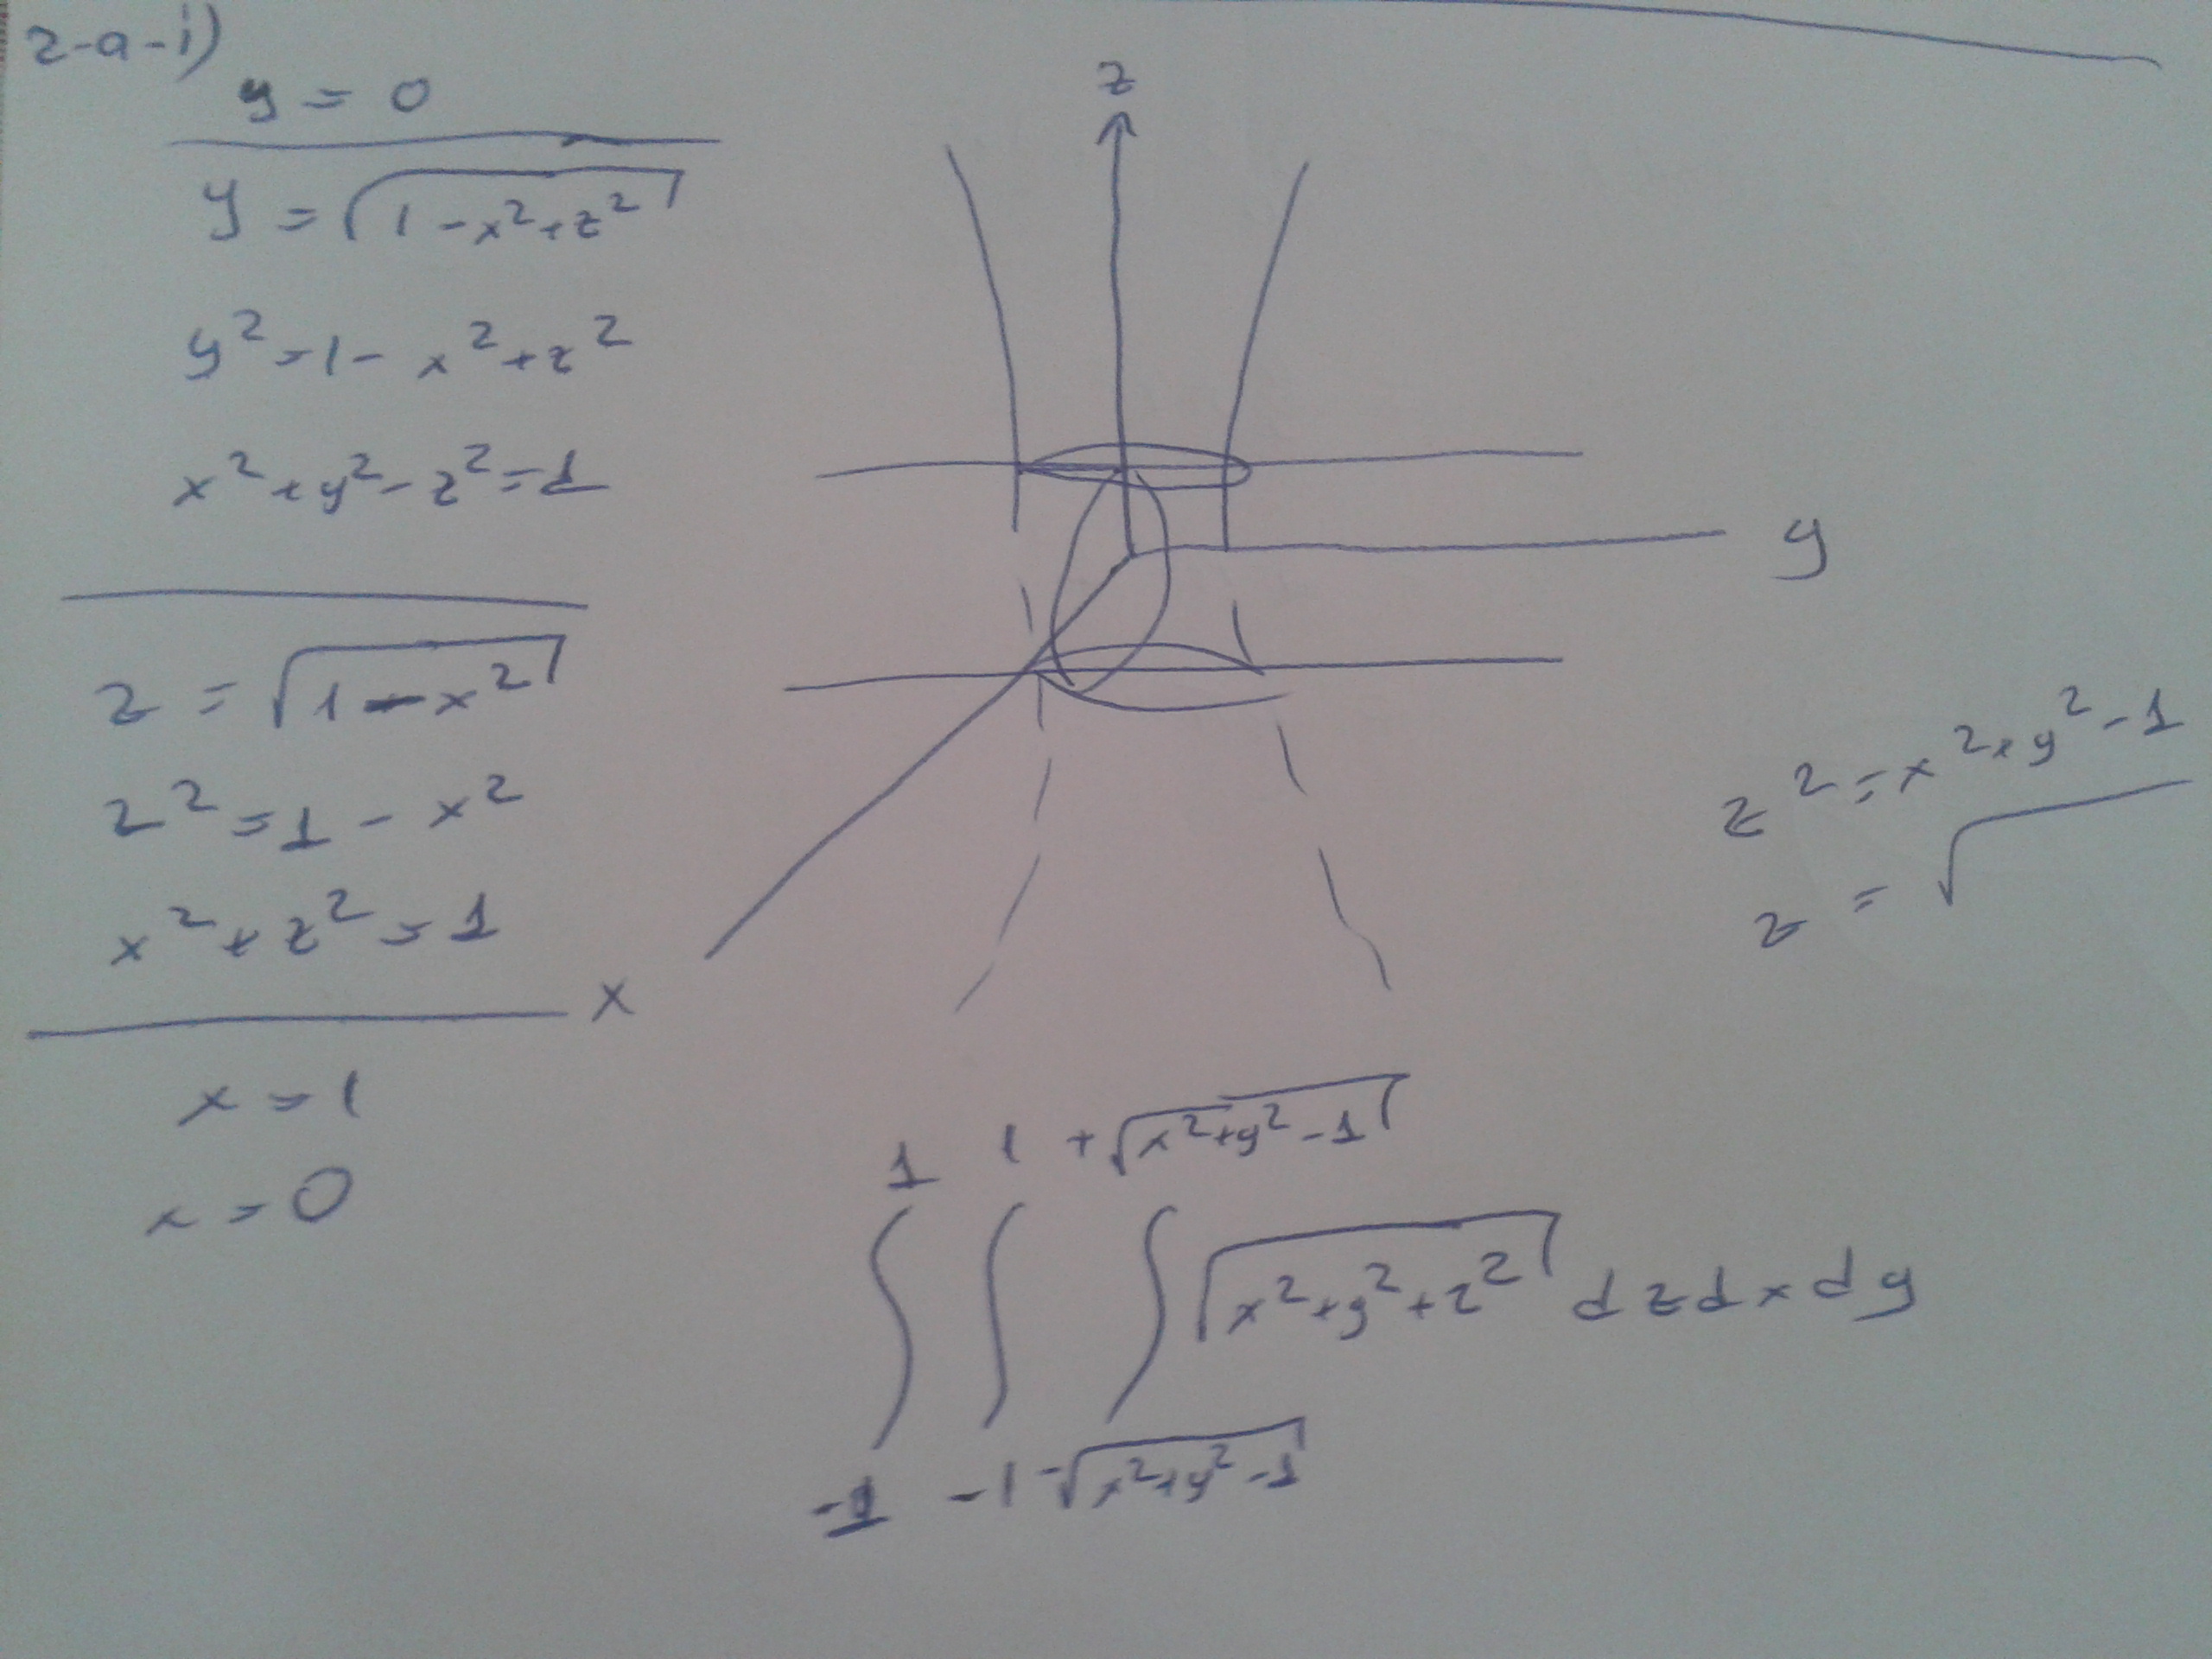 2-a-i)
y = 0
y = √(1-x²+z²)
y²=1-x²+z²
x²+y²-z²=1
z = √(1-x²)
z²=1-x²
x²+z²=1
x=1
x=0
z
y
x
z²=x²+y²-1
z = √
∫_{-1}^{1} ∫_{-1}^{1} ∫_{-√(x²+y²-1)}^{+√(x²+y²-1)} √(x²+y²+z²) dzdxdy